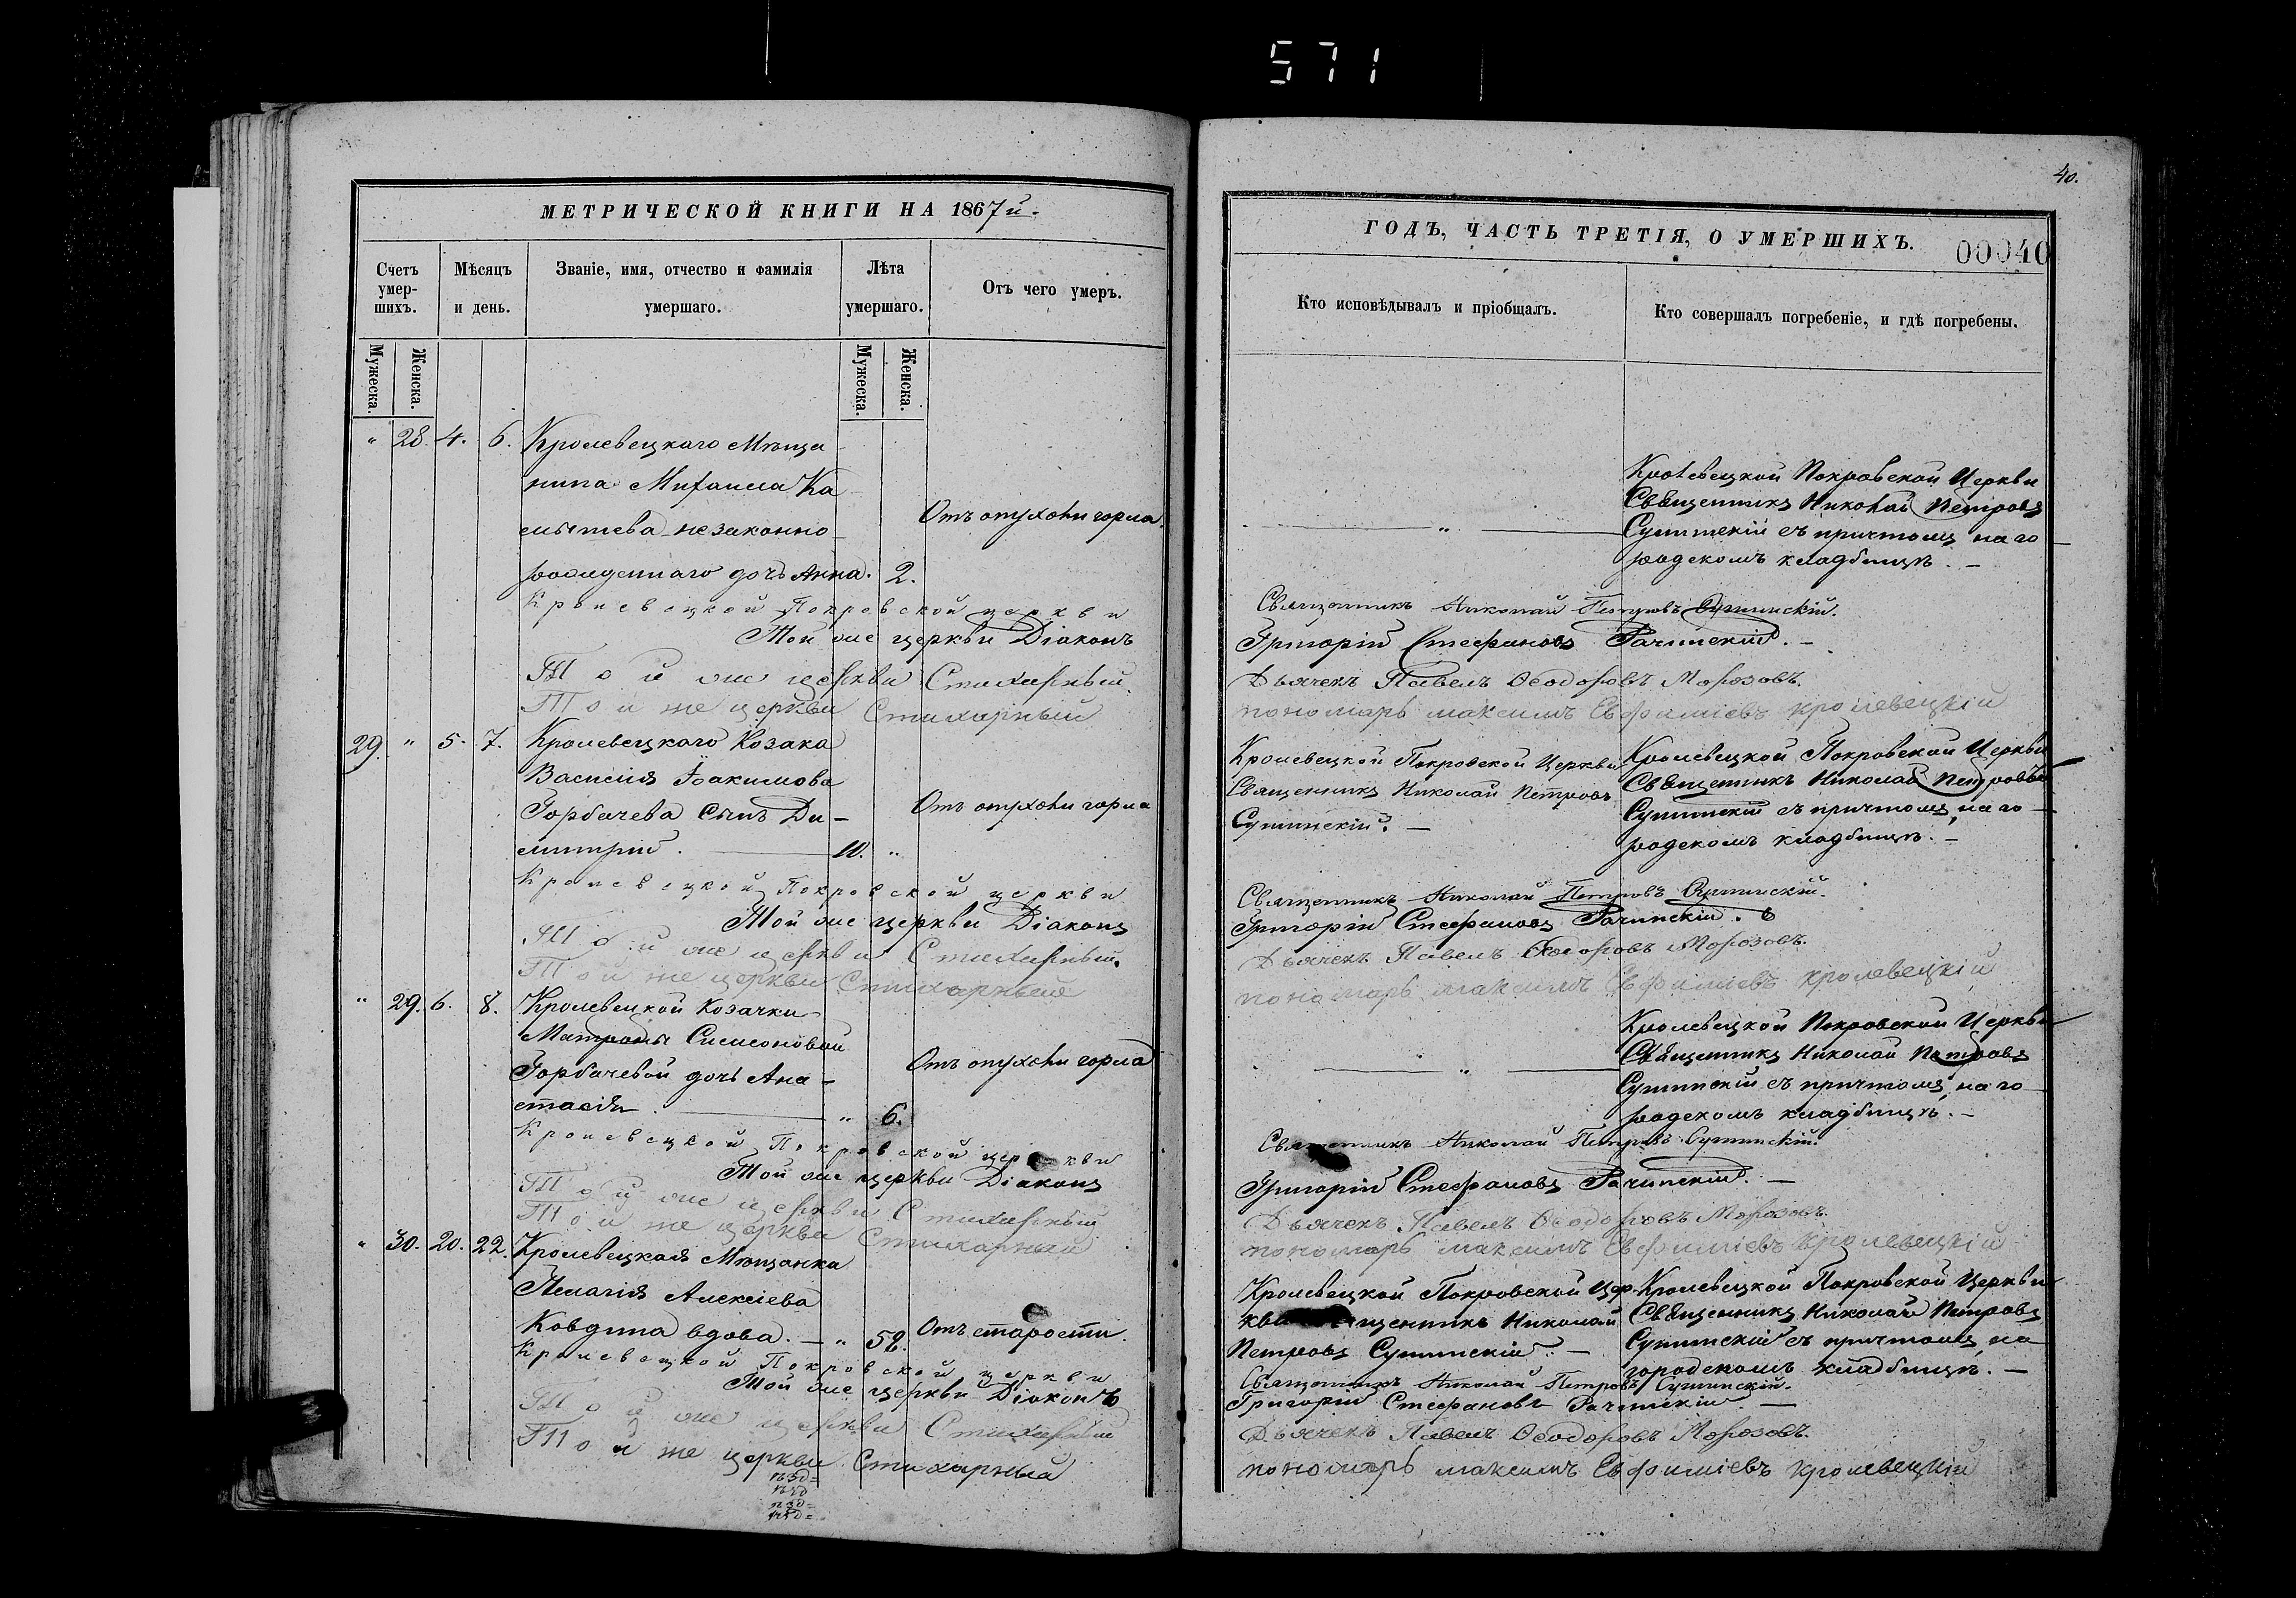 571
МЕТРИЧЕСКОЙ КНИГИ НА 1867й.
Счетъ умер-шихъ.
Мѣсяцъ и день.
Званіе, имя, отчество и фамилія умершаго.
Лѣта умершаго.
Отъ чего умеръ.
Мужеска. Женска.
Мужеска. Женска.
" 28. 4. 6. Кролевецкаго Мѣща
нина Михаила Ка
незаконно
Отъ опухоли горла.
рожденнаго дочь Анна. 2.
Кролевецкой Покровской церкви
Той же церкви Діаконъ
Той же церкви Стихарный
Той же церкви Стихарный
29. " 5. 7. Кролевецкаго Козака
Василія Іоакимова
Горбачева сынъ Ди-
Отъ опухоли горла
митрій. 10. "
Кролевецкой Покровской церкви
Той же церкви Діаконъ
Той же церкви Стихарный
Той же церкви Стихарный
" 29. 6. 8. Кролевецкой Козачки
Матроны Симеоновой
Горбачевой дочь Ана-
Отъ опухоли горла
стасія. " 6.
Кролевецкой Покровской церкви
Той же церкви Діаконъ
Той же церкви Стихарный
Той же церкви Стихарный
" 30. 20. 22. Кролевецкая Мѣщанка
Пелагія Алексіева
Ковдина вдова. " 52. Отъ старости.
Кролевецкой Покровской церкви
Той же церкви Діаконъ
Той же церкви Стихарный
Той же церкви Стихарный
40.
ГОДЪ, ЧАСТЬ ТРЕТІЯ, О УМЕРШИХЪ. 00040
Кто исповѣдывалъ и пріобщалъ.
Кто совершалъ погребеніе, и гдѣ погребены.
Кролевецкой Покровской Церкви
Священникъ Николай Петровъ
" Сушинскій съ причтомъ на го
родскомъ кладбищѣ. -
Священникъ Николай Петровъ Сушинскій.
Григорій Стефановъ Рачинскій. -
Дьячекъ Павелъ Ѳеодоровъ Морозовъ.
пономарь максимъ Евфиміевъ кролевецкій
Кролевецкой Покровской Церкви
Священникъ Николай Петровъ
Сушинскій. -
Кролевецкой Покровской Церкви
Священникъ Николай Петровъ
Сушинскій съ причтомъ, на го
родскомъ кладбищѣ. -
Священникъ Николай Петровъ Сушинскій.
Григорій Стефановъ Рачинскій.
Дьячекъ Павелъ Ѳеодоровъ Морозовъ.
пономарь максимъ Евфиміевъ кролевецкій
Кролевецкой Покровской Церкви
Священникъ Николай Петровъ
" Сушинскій съ причтомъ, на го
родскомъ кладбищѣ. -
Священникъ Николай Петровъ Сушинскій.
Григорій Стефановъ Рачинскій. -
Дьячекъ Павелъ Ѳеодоровъ Морозовъ.
пономарь максимъ Евфиміевъ кролевецкій
Кролевецкой Покровской Цер-
кви щенникъ Николай
Петровъ Сушинскій. -
Кролевецкой Покровской Церкви
Священникъ Николай Петровъ
Сушинскій съ причтомъ, на
городскомъ кладбищѣ. -
Священникъ Николай Петровъ Сушинскій.
Григорій Стефановъ Рачинскій. -
Дьячекъ Павелъ Ѳеодоровъ Морозовъ.
пономарь максимъ Евфиміевъ кролевецкій